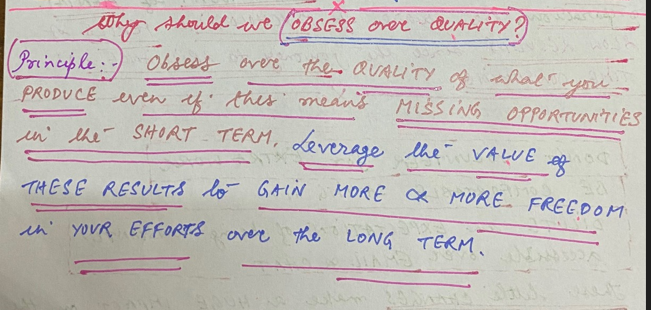 Why should we OBSESS over QUALITY?
Principle:- Obsess over the QUALITY of what you
PRODUCE even if this means MISSING OPPORTUNITIES
in the SHORT TERM. Leverage the VALUE of
THESE RESULTS to GAIN MORE & MORE FREEDOM
in YOUR EFFORTS over the LONG TERM.